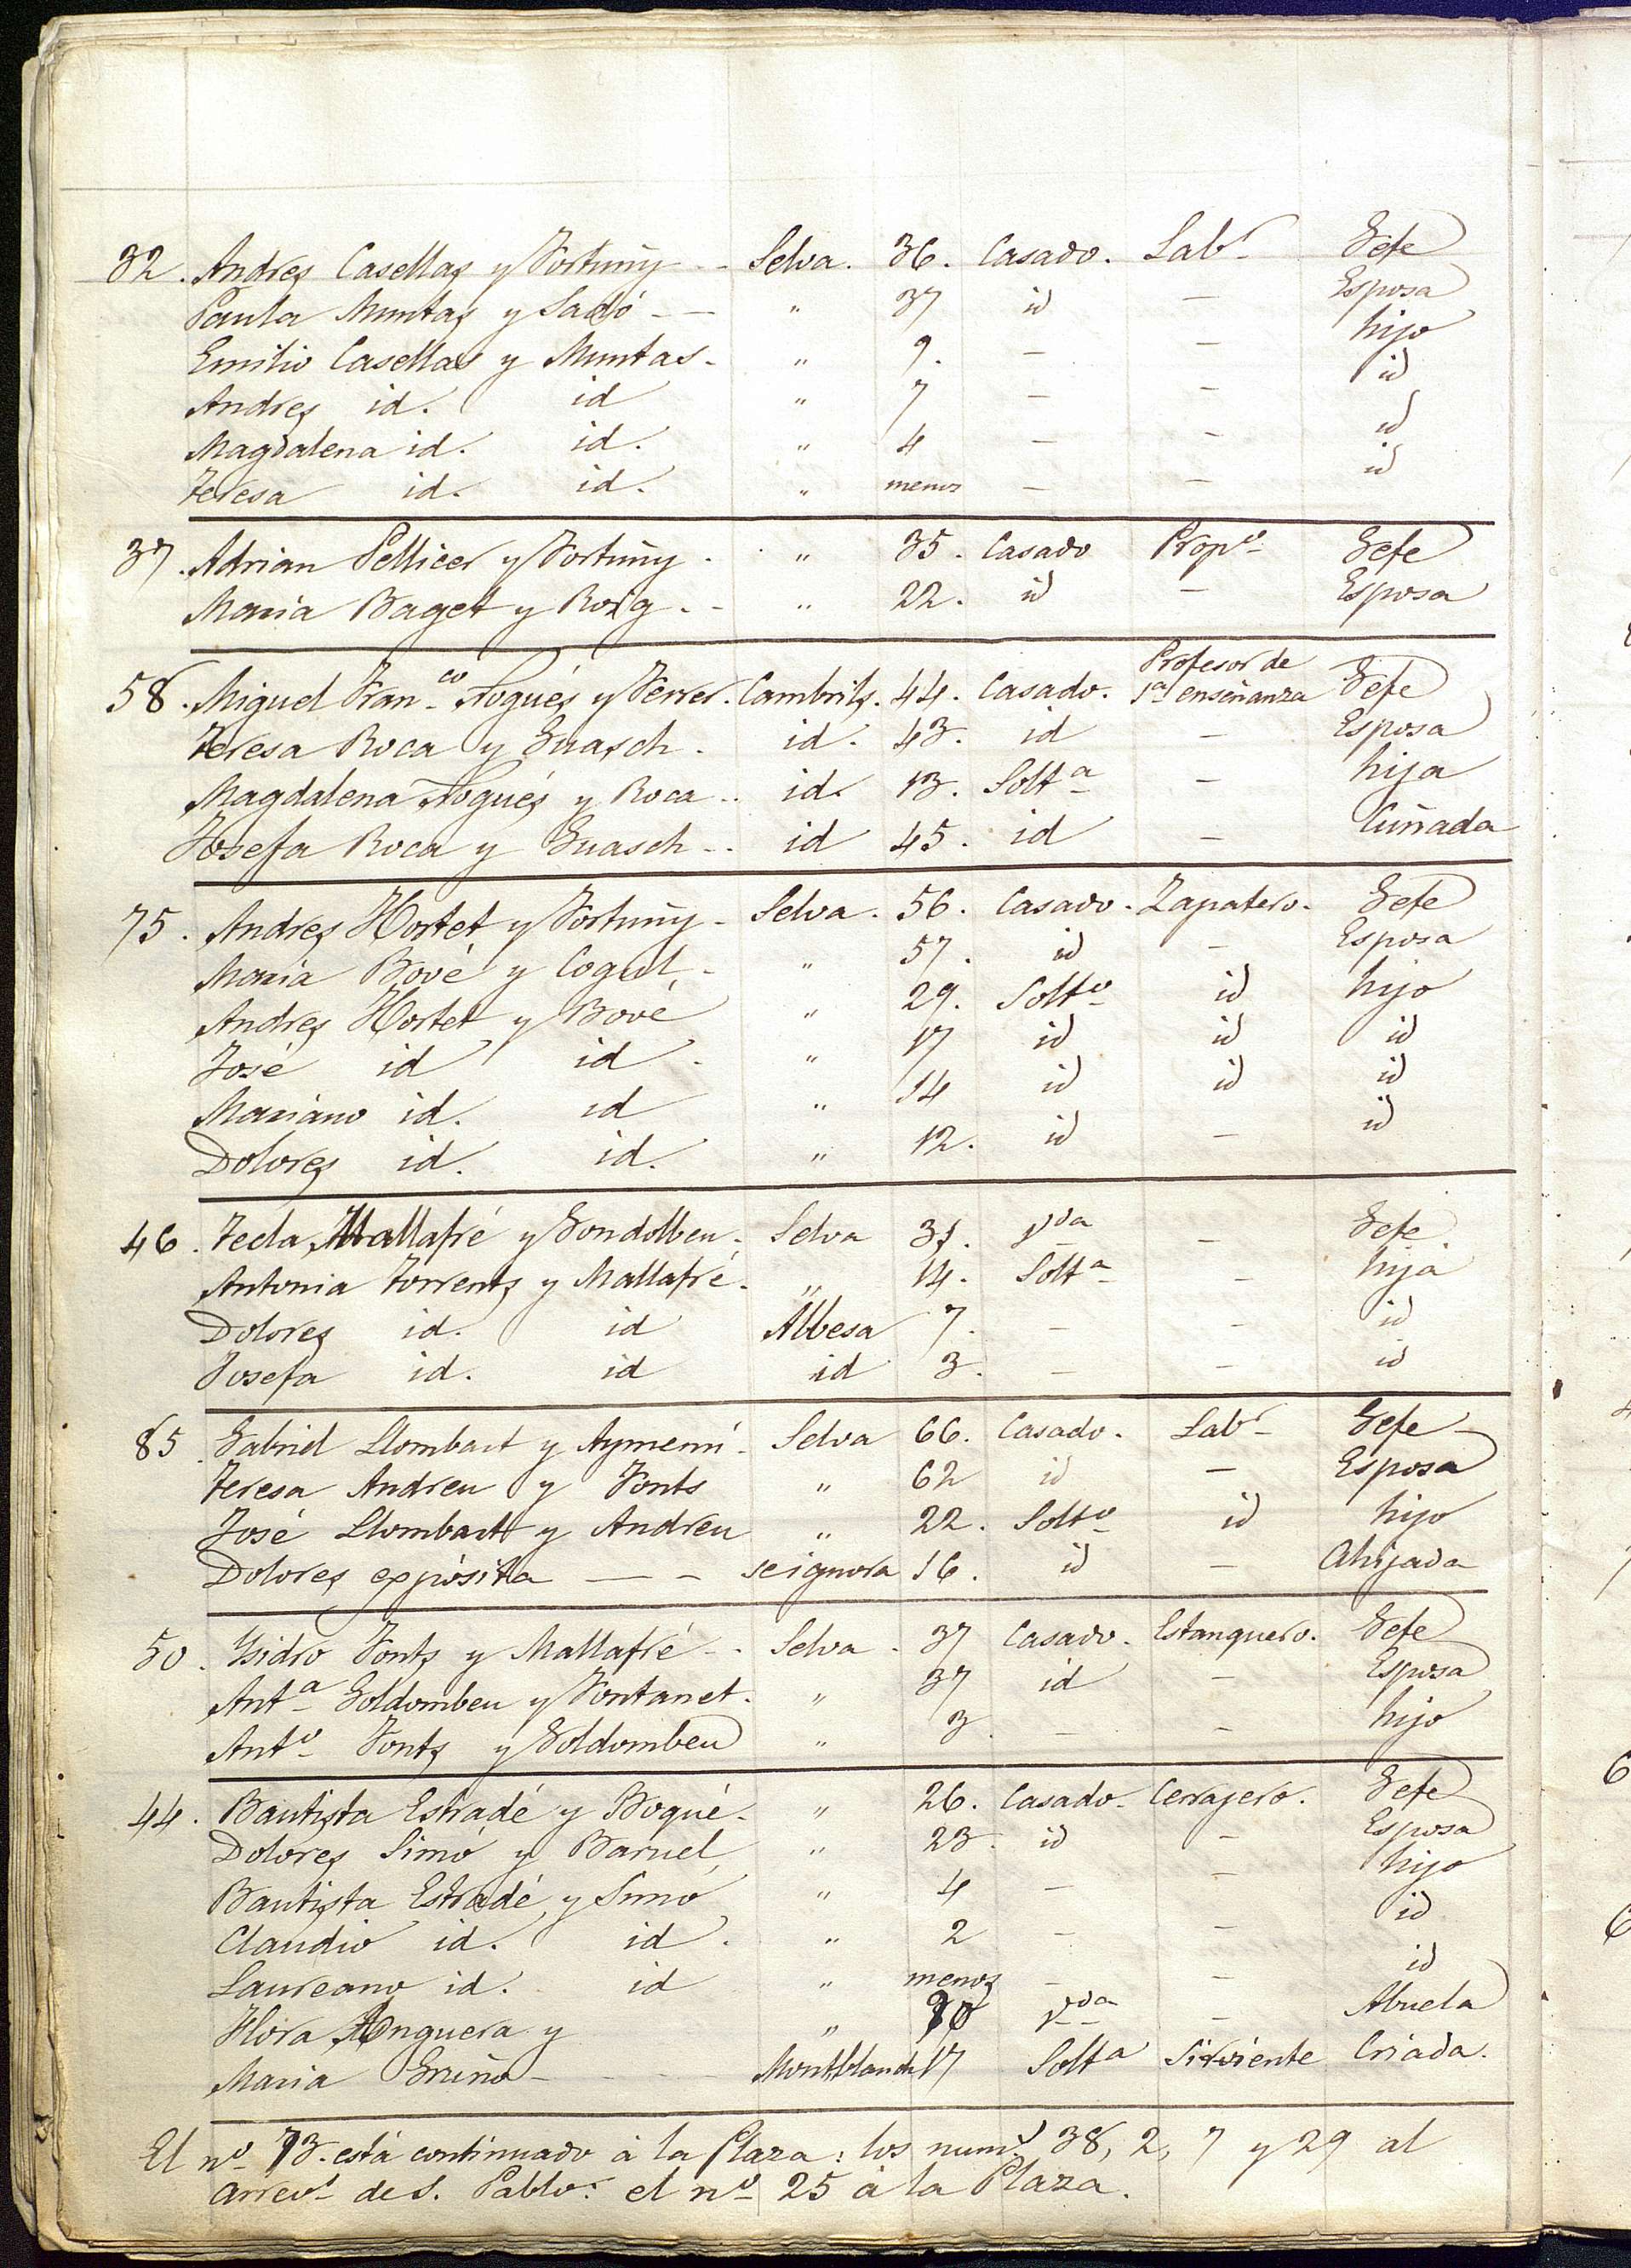 32. Andres Casellas y Fortuny - - Selva. 36. Casado. Labr Gefe
Paula Muntas y Sadó - - " 37 id - Esposa
Emilio Casellas y Muntas - " 9. - - hijo
Andres id. id " 7 - - id
Magdalena id. id. " 4 - - id
Teresa id. id. " menos - - id
37. Adrian Pellicer y Fortuny - " 35. Casado Propo Gefe
Maria Baget y Roig - - " 22. id - Esposa
Profesor de
58. Miguel Franco Nogués y Ferrer. Cambrils. 44. Casado. 1a enseñanza Gefe
Teresa Roca y Guasch - id. 43. id - Esposa
Magdalena Nogués y Roca - - id. 13. Solta - hija
Josefa Roca y Guasch - - id 45. id - Cuñada
75. Andres Hortet y Fortuny - Selva. 56. Casado. Zapatero. Gefe
Maria Bové y Cogul - " 57. id - Esposa
Andres Hortet y Bové " 29. Solto id hijo
José id id - " 17 id id id
Mariano id. id " 14 id id id
Dolores id. id. " 12. id - id
46. Tecla Mallafré y Gondolbeu - Selva 31. Vda - Gefe
Antonia Torrents y Mallafré - " 14. Solta - hija
Dolores id. id Albesa 7. - - id
Josefa id. id id 3. - - id
85. Gabriel Llombart y Aymemí - Selva 66. Casado. Labr Gefe
Teresa Andreu y Fonts " 62 id - Esposa
José Llombart y Andreu " 22. Solto id hijo
Dolores expósita - - se ignora 16. id - Ahijada
50. Ysidro Fonts y Mallafré - - Selva - 37 Casado. Estanquero. Gefe
Anta Goldombeu y Fontanet. " 37 id - Esposa
Anto Fonts y Goldombeu " 3 - - hijo
44. Bautista Estradé y Bogué - " 26. Casado. Cerrajero. Gefe
Dolores Simó y Baruel " 23. id - Esposa
Bautista Estradé y Simó " 4 - - hijo
Claudio id. id. " 2 - - id
Laureano id. id " menos - - id
Flora Anguera y " Vda - Abuela
Maria - - - Montblanch 17 Solta Sirviente Criada.
El no 73. está continuado á la Plaza: los nums 38, 2, 7 y 29 al
arrevl de S. Pablo: el no 25 á la Plaza.